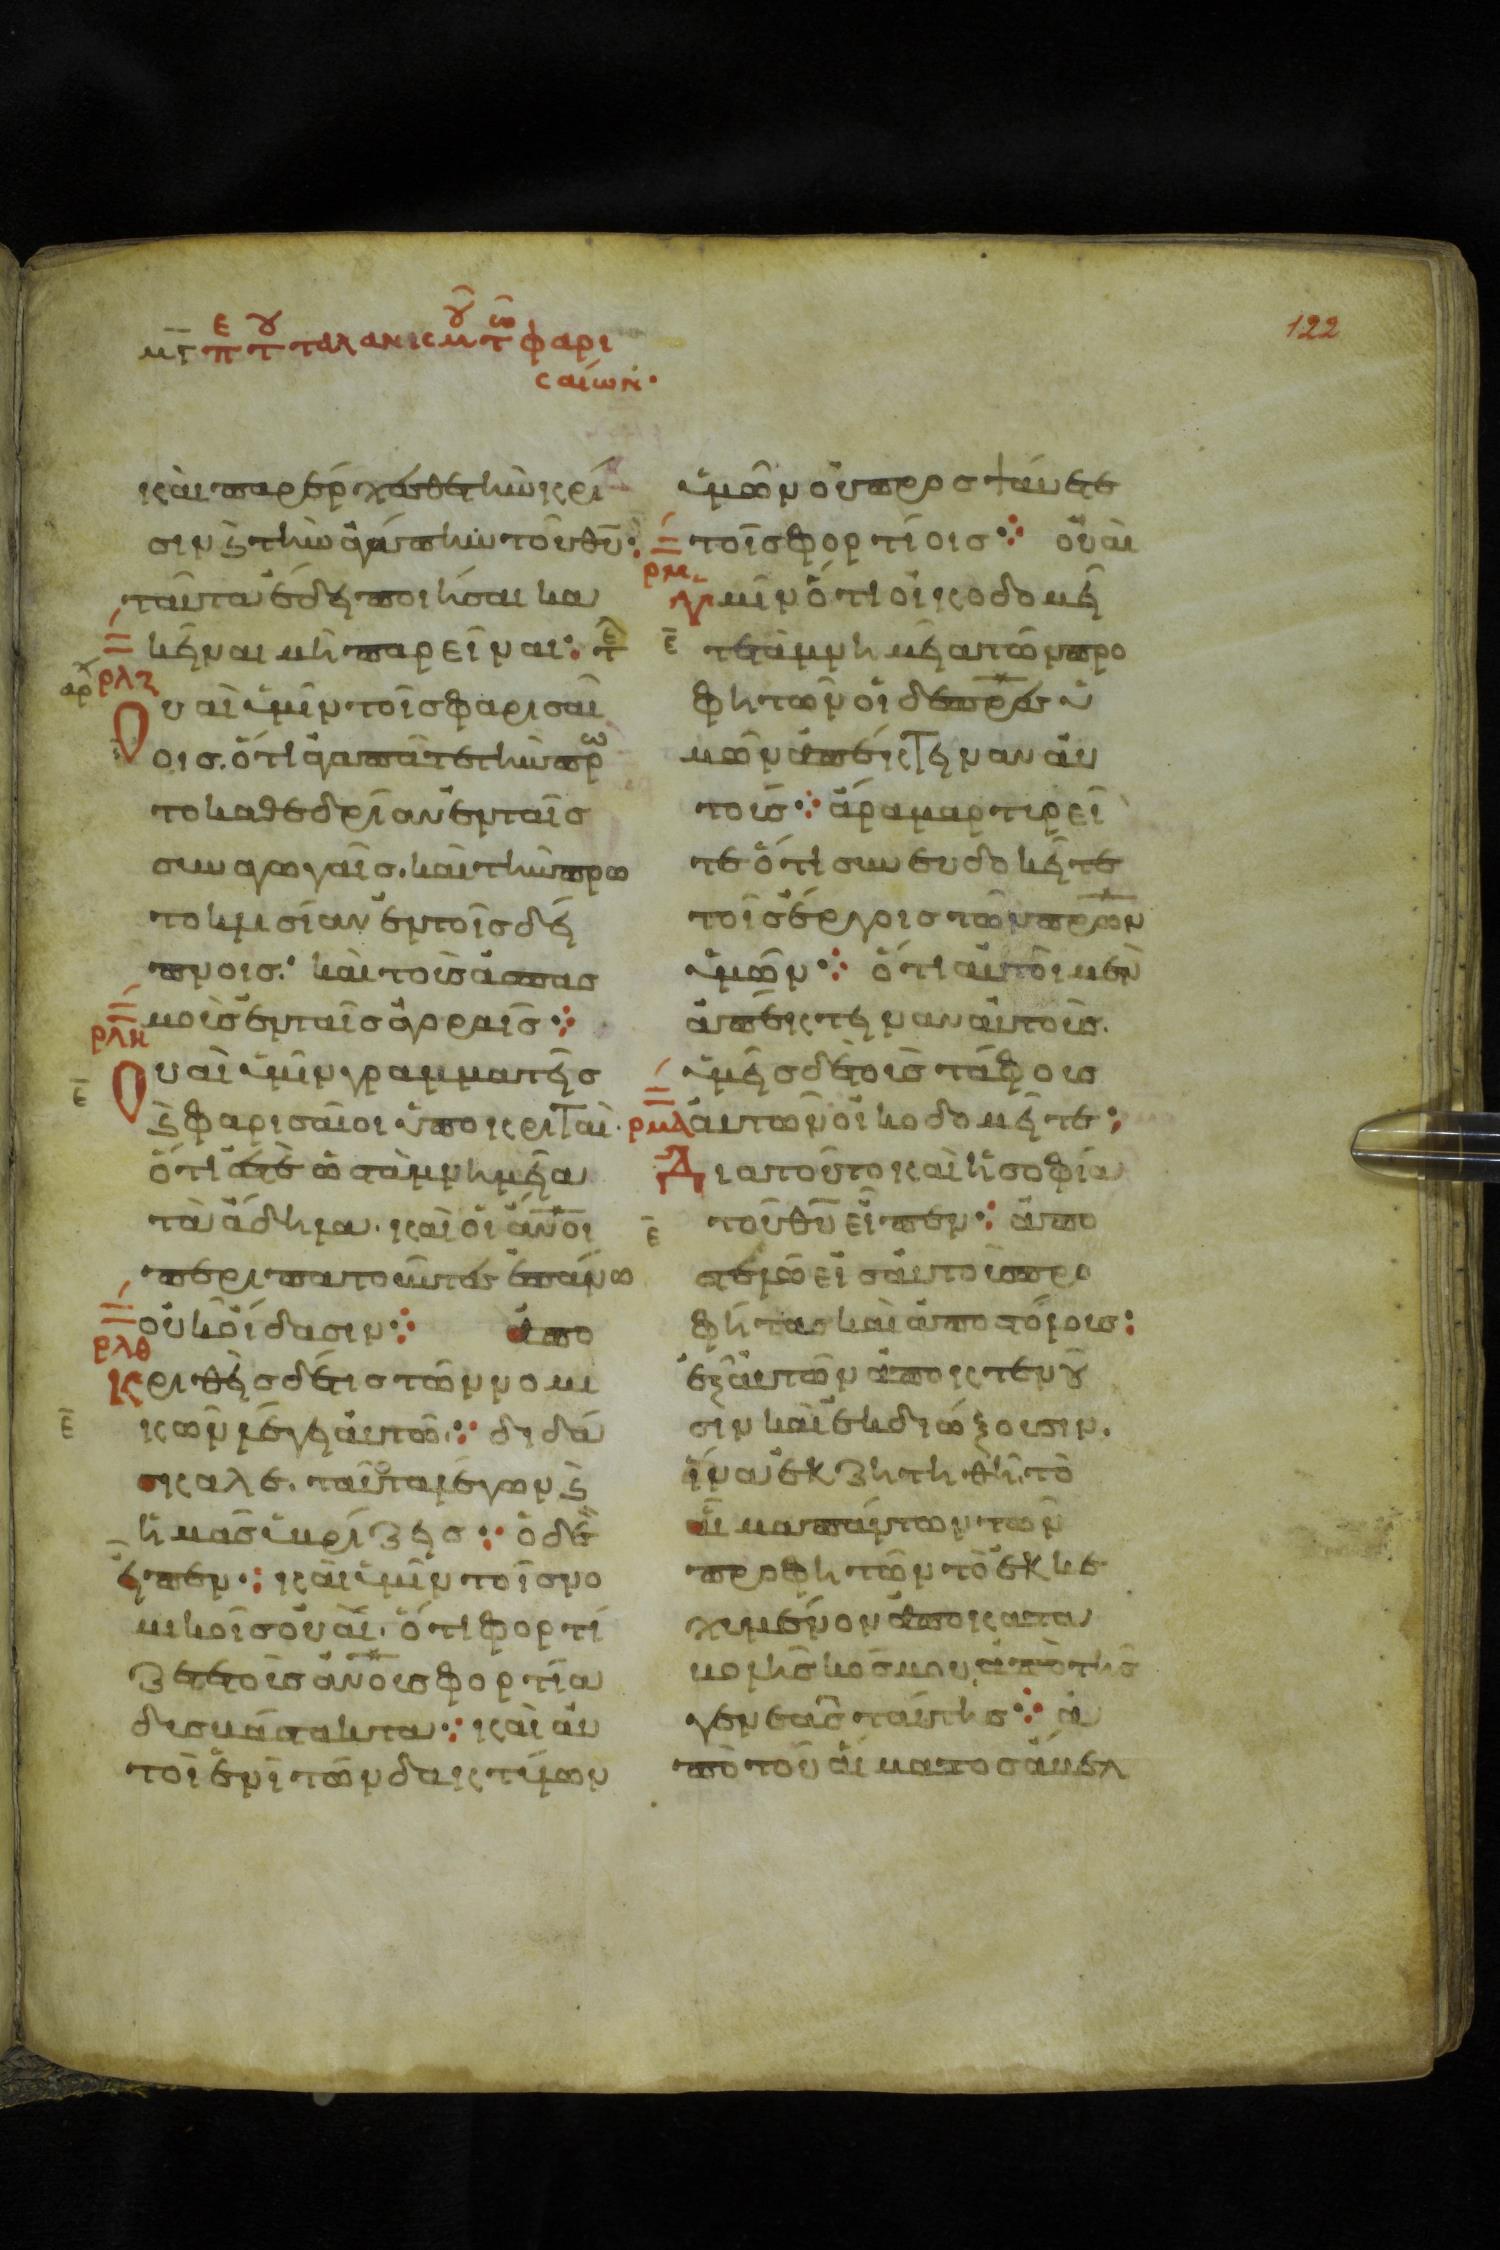 122
μγ πε του ταλανισμου των φαρι
σαίων·
καὶ παρέρχεσθε τὴν κρί
σιν ϛ τὴν ἀγάπην τοῦ θυ:
ταῦτα ἔδει ποιῆσαι κα
κεῖναι μὴ παρεῖναι: τε
ρλζ
αρχ
Ουαὶ ὑμῖν τοῖς φαρισαί
οις. ὅτι ἀγαπᾶτε τὴν πρω
τοκαθεδρίαν ἐν ταῖς
συναγωγαῖς. καὶ τὴν πρω
τοκλησίαν ἐν τοῖς δεί
πνοις. καὶ τοὺς ἀσπασ
μοὺς ἐν ταῖς ἀγοραῖς
ρλη
Ουαὶ ὑμῖν γραμματεῖς
ε
ϛ φαρισαῖοι ὑποκριταὶ.
ὅτι ἐστὲ ὡς τὰ μνημεῖα
τὰ ἄδηλα. καὶ οἱ ἀνοι
περιπατοῦντες ἐπάνω
οὐκ οἴδασιν ἀπο
ρλθ
κριθεὶς δέ τις τῶν νομι
ε
κῶν λέγει αὐτῶ. διδά
σκαλε. ταῦτα λέγων ϛ
ἡμᾶς ὑβρίζεις ὁ δὲ
εἶπεν: καὶ ὑμῖν τοῖς νο
μικοῖς οὐαὶ. ὅτι φορτί
ζετε τοὺς ἀνους φορτία
δυσβάστακτα: καὶ αὐ
τοὶ ἑνὶ τῶν δακτύλων
ὑμῶν οὐ προσψαύετε
τοῖς φορτίοις οὐαὶ
ρμ
ὑμῖν ὅτι οἰκοδομεῖ
ε
τε τὰ μνημεῖα τῶν προ
φητῶν οἱ δὲ πρες ὑ
μῶν ἀπέκτειναν αὐ
τοὺς ἄρα μαρτυρεῖ
τε ὅτι συνευδοκεῖτε
τοῖς ἔργοις τῶν πρων
ὑμῶν ὅτι αὐτοὶ μὲν
ἀπέκτειναν αὐτοὺς.
ὑμεῖς δὲ τοὺς τάφους
ρμα
αὐτῶν οἰκοδομεῖτε:
Διατοῦτο καὶ ἡ σοφία
ε
τοῦ θυ εἶπεν: ἀπο
στελῶ εἰς αὐτοὺς προ
φήτας καὶ ἀποστόλους:
ἐξ αὐτῶν ἀποκτενοῦ
σιν καὶ ἐκδιώξουσιν.
ἵνα ἐκζητηθῆ τὸ
αἷμα πάντων τῶν
προφητῶν τὸ ἐκκε
χυμένον ἀπο κατα
βολῆς κόσμου ἀπὸ τῆς
γενεᾶς ταύτης ἀ
πὸ τοῦ αἵματος ἄβελ